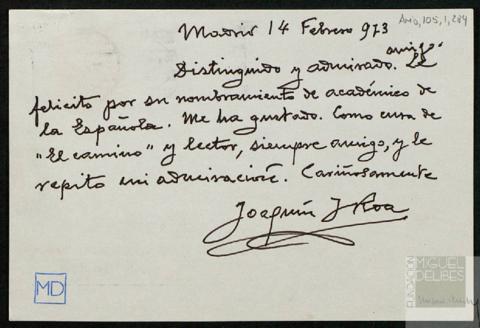 Madrid 14 Febrero 973
AMD,105,1,284
amigo:
Distinguido y admirado. Le
felicito por su nombramiento de académico de
la Española. Me ha gustado. Como cura de
"El camino" y lector, siempre amigo, y le
repito mi admiración. Cariñosamente
Joaquín Roa
MD
FUNDACIÓN
MIGUEL
DELIBES